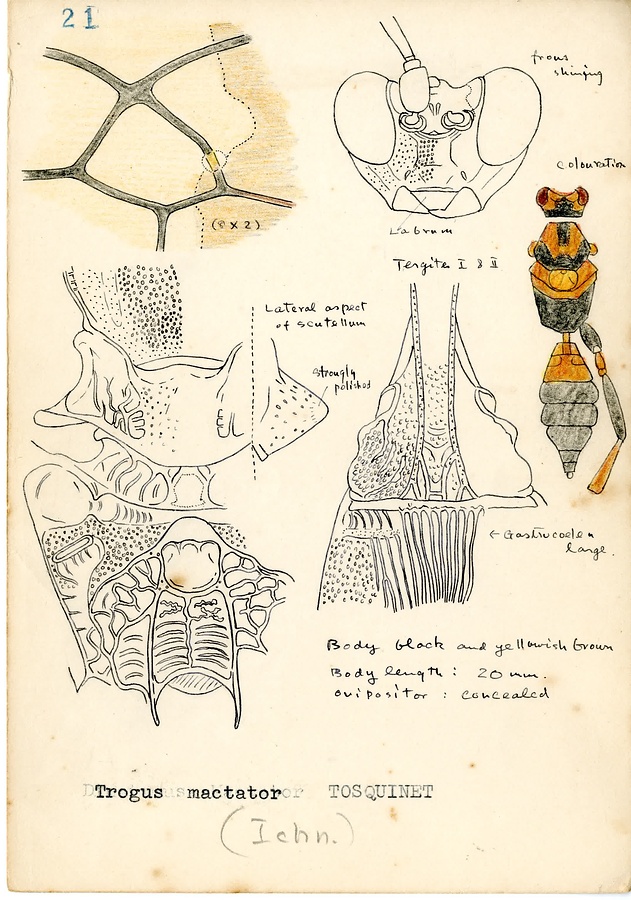 21
frons
shining
colouration
(⊗ x 2)
Labrum
Tergites I & II
Lateral aspect
of scutellum
strongly
polished
← Gastrocoelen
large.
Body black and yellowish brown
Body length : 20 mm.
ovipositor : concealed
Trogus mactator TOSQUINET
(Ichn.)